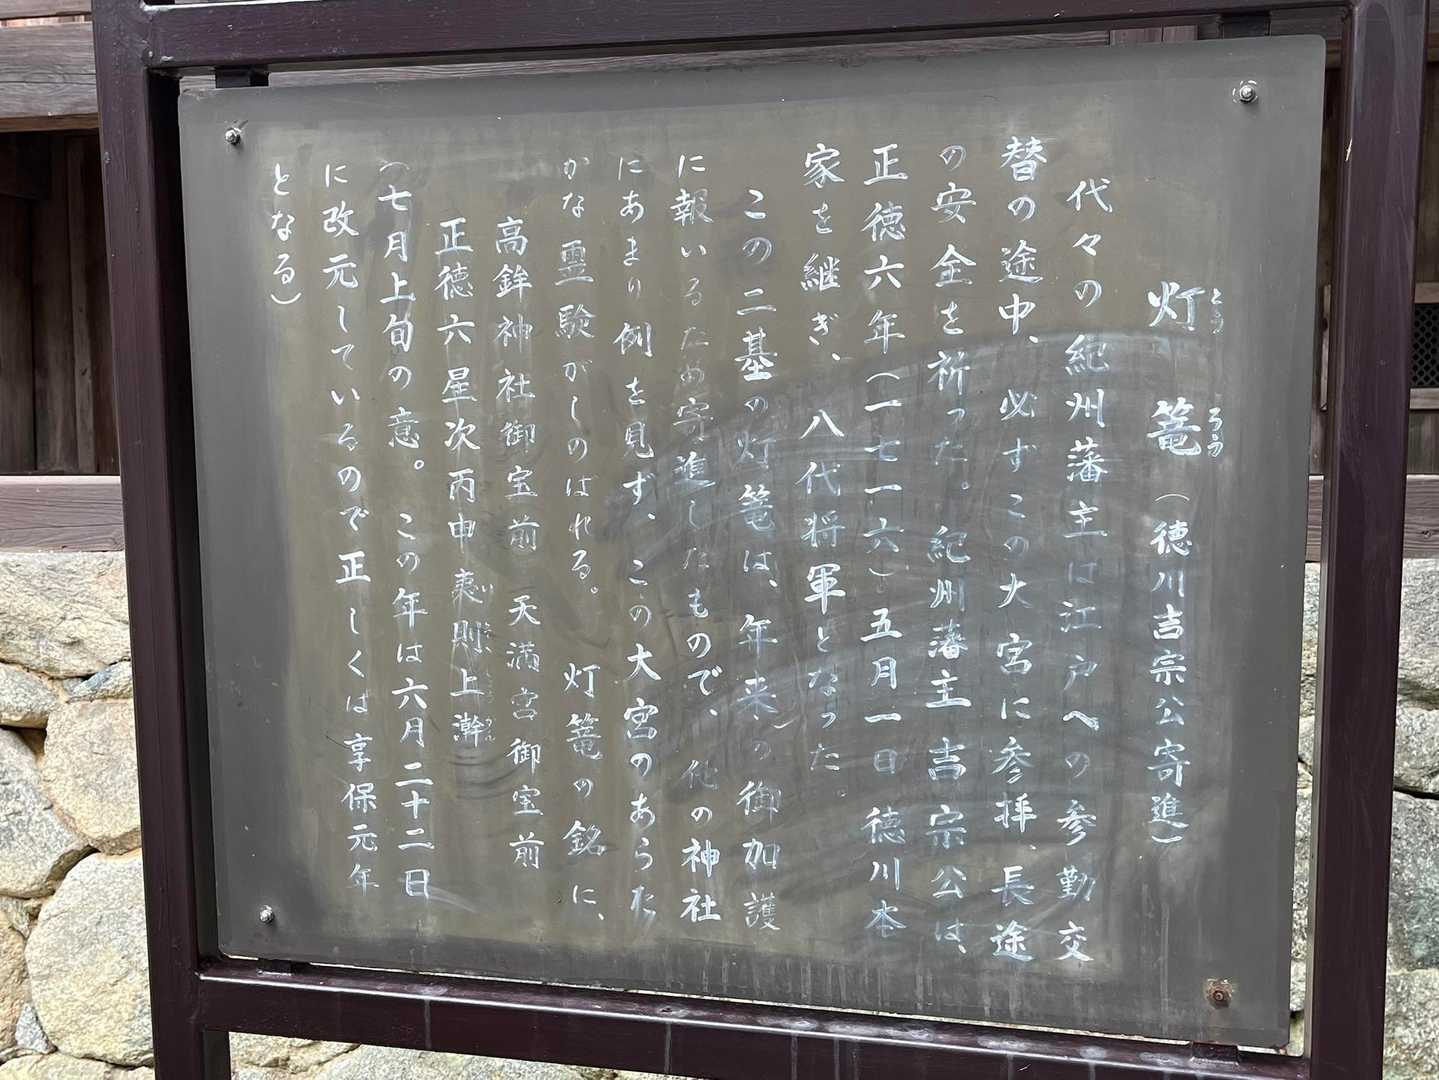 灯篭（徳川吉宗公寄進）
とう ろう
代々の紀州藩主は江戸への参勤交
替の途中、必ずこの大宮に参拝、長途
の安全を祈った。紀州藩主 吉宗公は、
正徳六年（一七一六）五月一日 徳川本
家を継ぎ、八代将軍となった。
この二基の灯篭は、年来の御加護
に報いるため寄進したもので、他の神社
にあまり例を見ず、この大宮のあらた
かな霊験がしのばれる。灯篭の銘に、
高鉾神社御宝前 天満宮御宝前
正徳六星次丙申夷則上澣
（七月上旬の意。この年は六月二十二日
に改元しているので正しくは享保元年
となる）